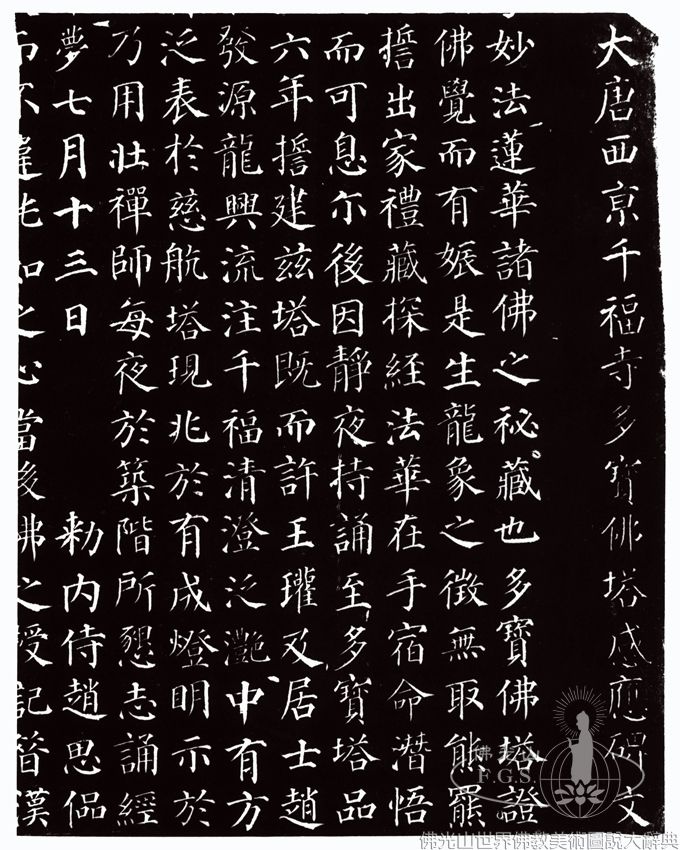 大唐西京千福寺多寶佛塔感應碑文
妙法蓮華諸佛之祕藏也多寶佛塔證
佛覺而有娠是生龍象之徵無取熊羆
誓出家禮藏探經法華在手宿命潛悟
而可息尒後因靜夜持誦至多寶塔品
六年誓建茲塔既而許王瓘及居士趙
發源龍興流注千福清澄泛灩中有方
泛表於慈航塔現兆於有成燈明示於
乃用壯禪師每夜於築階所懇志誦經
夢七月十三日 勑内侍趙思侃
而不違純如之心當後佛之授記昔漢
佛光山
F.G.S.
佛光山世界佛教美術圖說大辭典